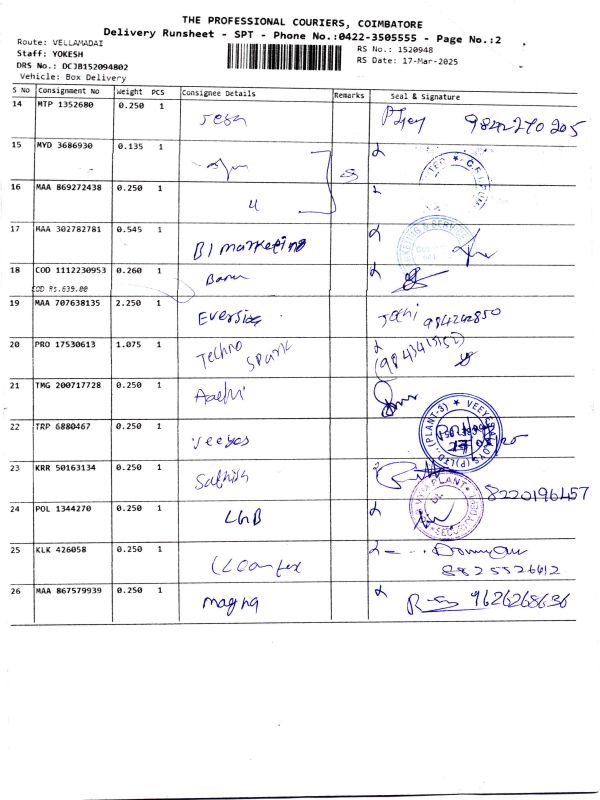 THE PROFESSIONAL COURIERS, COIMBATORE
Delivery Runsheet - SPT - Phone No.:0422-3505555 - Page No.:2
Route: VELLAMADAI
RS No.: 1520948
Staff: YOKESH
RS Date: 17-Mar-2025
DRS No.: DCJB152094802
Vehicle: Box Delivery
S No Consignment No Weight PCS Consignee Details Remarks Seal & Signature
14 MTP 1352680 0.250 1 9842270205
15 MYD 3686930 0.135 1
16 MAA 869272438 0.250 1
17 MAA 302782781 0.545 1 BI marketing
18 COD 1112230953 0.260 1
COD Rs.639.00
19 MAA 707638135 2.250 1
20 PRO 17530613 1.075 1 Techno Spark
21 TMG 200717728 0.250 1
22 TRP 6880467 0.250 1 (PLANT-3)
23 KRR 50163134 0.250 1 Sathish
8220196457
24 POL 1344270 0.250 1 LGB
25 KLK 426058 0.250 1
26 MAA 867579939 0.250 1 magna 9626268636